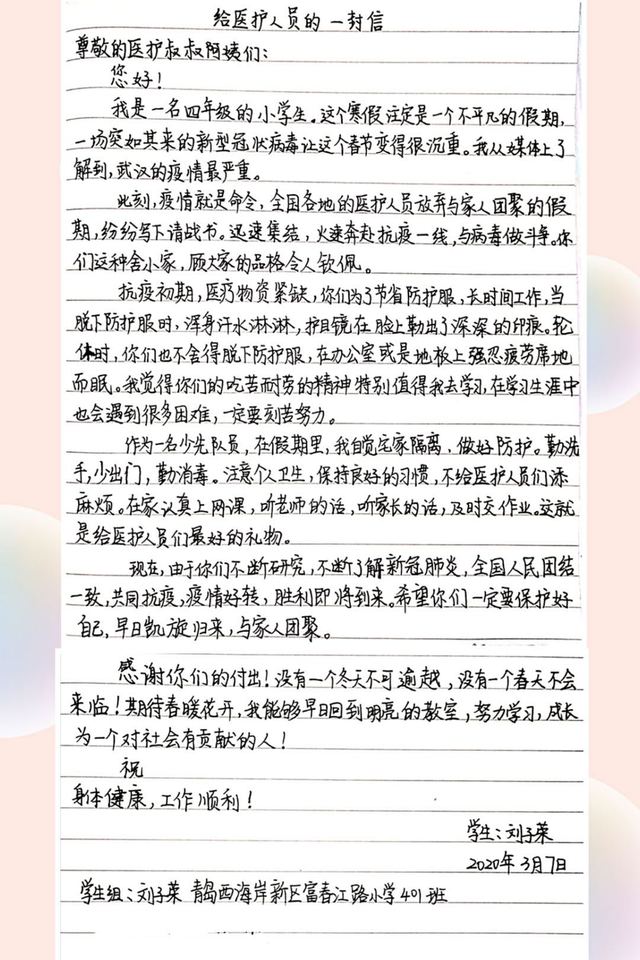 给医护人员的一封信
尊敬的医护叔叔阿姨们：
您好！
我是一名四年级的小学生。这个寒假注定是一个不平凡的假期，
一场突如其来的新型冠状病毒让这个春节变得很沉重。我从媒体上了
解到，武汉的疫情最严重。
此刻，疫情就是命令，全国各地的医护人员放弃与家人团聚的假
期，纷纷写下请战书。迅速集结，火速奔赴抗疫一线，与病毒做斗争。你
们这种舍小家，顾大家的品格令人钦佩。
抗疫初期，医疗物资紧缺，你们为了节省防护服，长时间工作，当
脱下防护服时，浑身汗水淋淋，护目镜在脸上勒出了深深的印痕。轮
休时，你们也不舍得脱下防护服，在办公室或是地板上强忍疲劳席地
而眠。我觉得你们的吃苦而劳的精神特别值得我去学习，在学习生涯中
也会遇到很多困难，一定要刻苦努力。
作为一名少先队员，在假期里，我自觉宅家隔离，做好防护。勤洗
手，少出门，勤消毒。注意个人卫生，保持良好的习惯，不给医护人员们添
麻烦。在家认真上网课，听老师的话，听家长的话，及时交作业。这就
是给医护人员们最好的礼物。
现在，由于你们不断研究，不断了解新冠肺炎，全国人民团结
一致，共同抗疫，疫情好转，胜利即将到来。希望你们一定要保护好
自己，早日凯旋归来，与家人团聚。
感谢你们的付出！没有一个冬天不可逾越，没有一个春天不会
来临！期待春暖花开，我能够早日回到明亮的教室，努力学习，成长
为一个对社会有贡献的人！
祝
身体健康，工作顺利！
学生：刘子荣
2020年3月7日
学生组：刘子荣 青岛西海岸新区富春江路小学401班